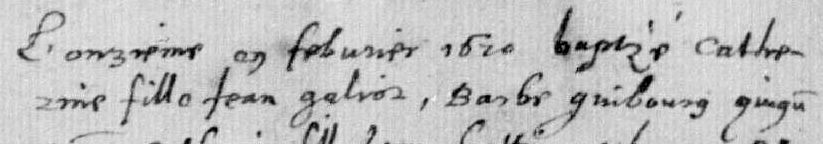 L'onzieme en feburier 1620 baptizé Cathe-
rine fille Jean galior, Barbe guibourg